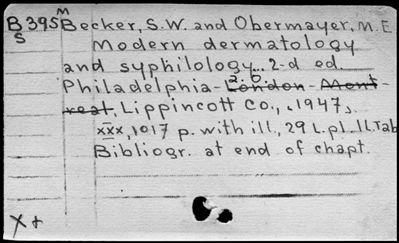 M
B395 Becker, S.W. and Obermayer, M.E.
S Modern dermatology
and syphilology... 2-d ed.
a. o.
Philadelphia - London - Mont-
real, Lippincott Co., 1947,
xxx, 1017 p. with ill., 29 L. pl. ll. Tab
Bibliogr. at end of chapt.
X+